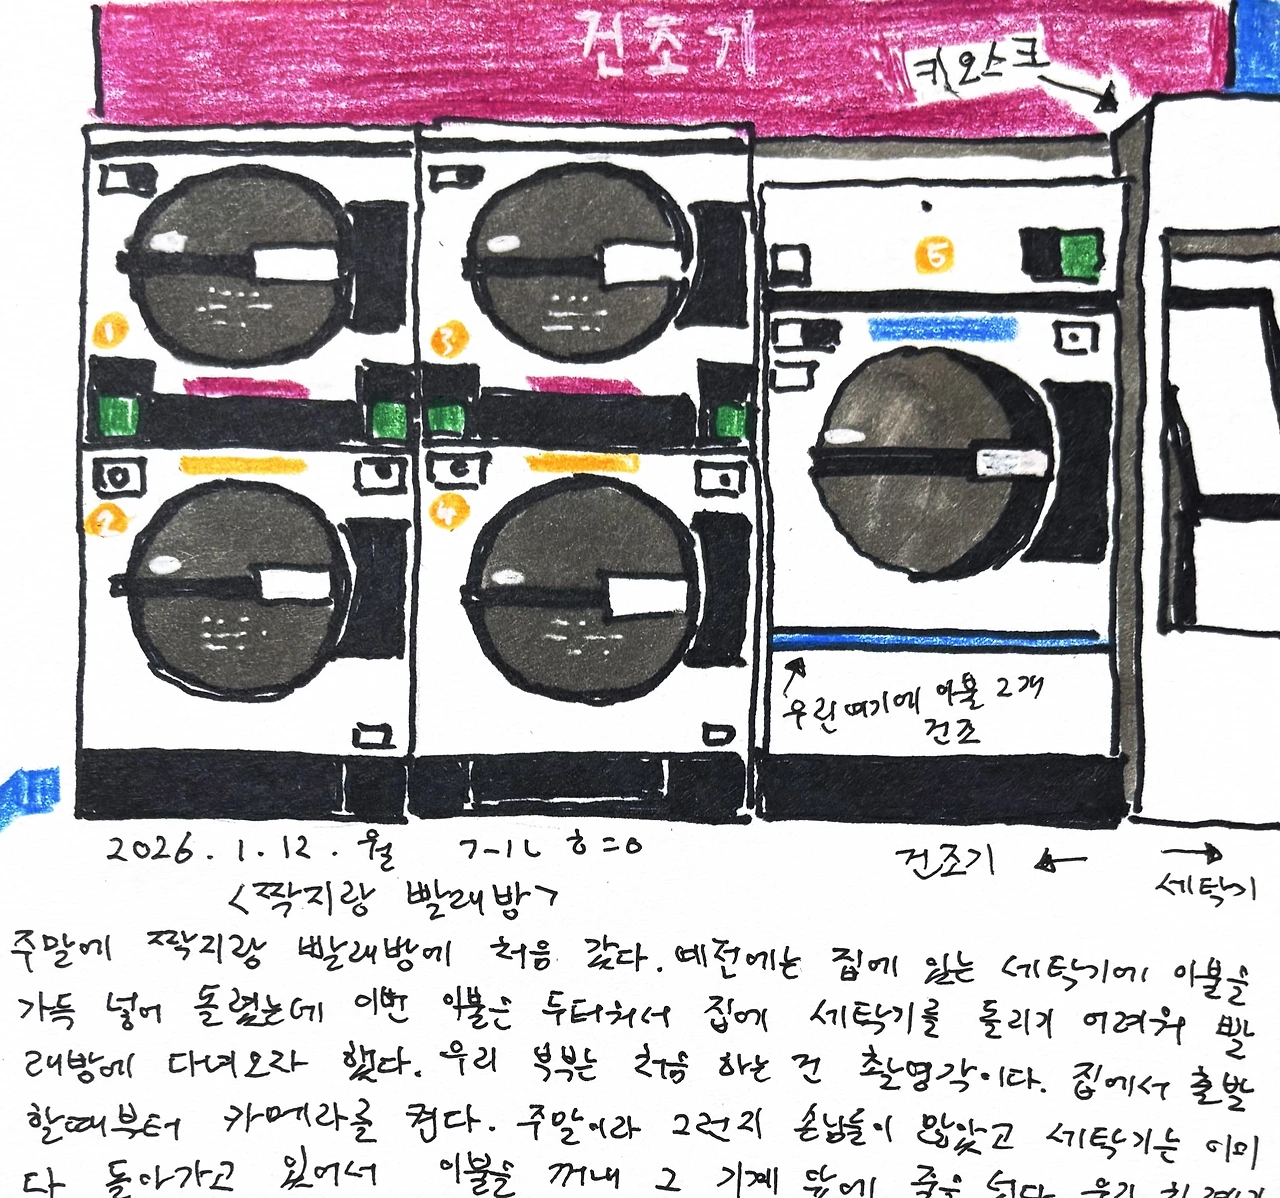 건조기
키오스크
1
3
5
2
4
우린 여기에 이불 2개
건조
2026. 1. 12. 월
건조기 ←
→ 세탁기
<짝지랑 빨래방>
주말에 짝지랑 빨래방에 처음 갔다. 예전에는 집에 있는 세탁기에 이불을
가득 넣어 돌렸는데 이번 이불은 두터워서 집에 세탁기를 돌리기 어려워 빨
래방에 다녀오라 했다. 우리 부부는 처음 하는 건 촬영각이다. 집에서 출발
할때부터 카메라를 켠다. 주말이라 그런지 손님들이 많았고 세탁기는 이미
다 돌아가고 있어서 이불을 꺼내 그 기계 앞에 죽 우리